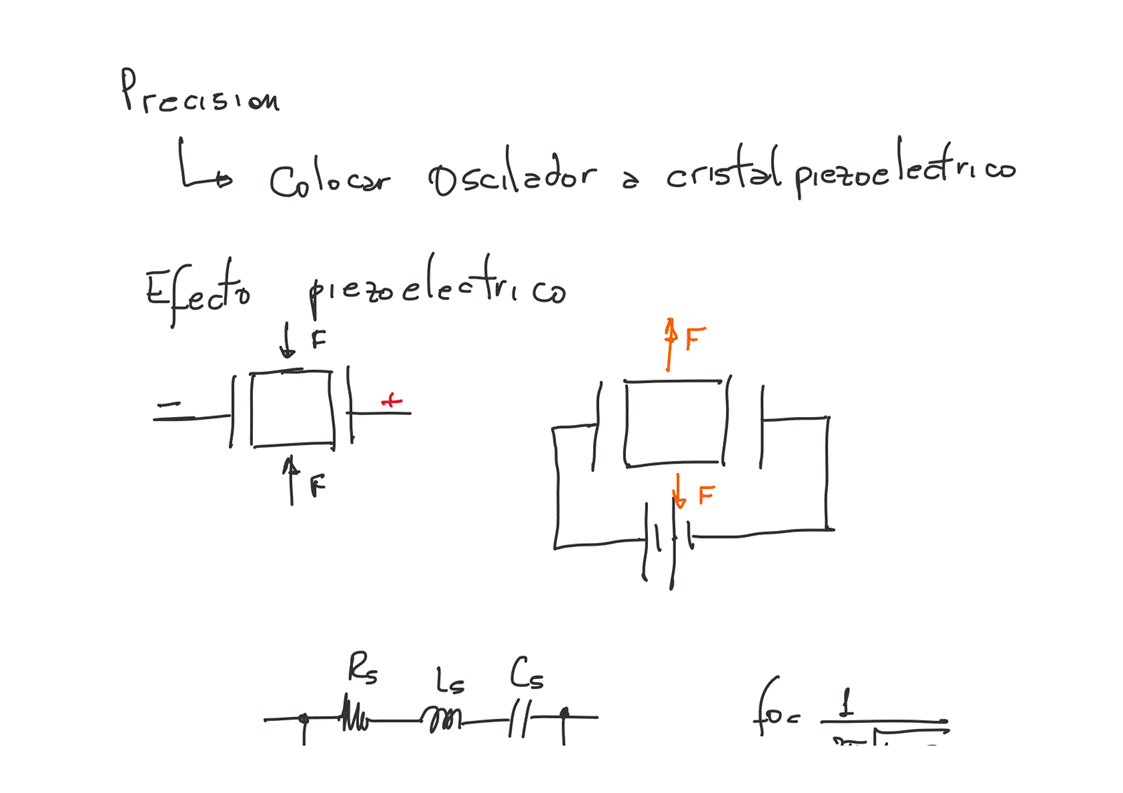 Precision
↳ Colocar Oscilador a cristal piezoelectrico
Efecto piezoelectrico
F
F
- +
F
F
Rs Ls Cs
fo = 1